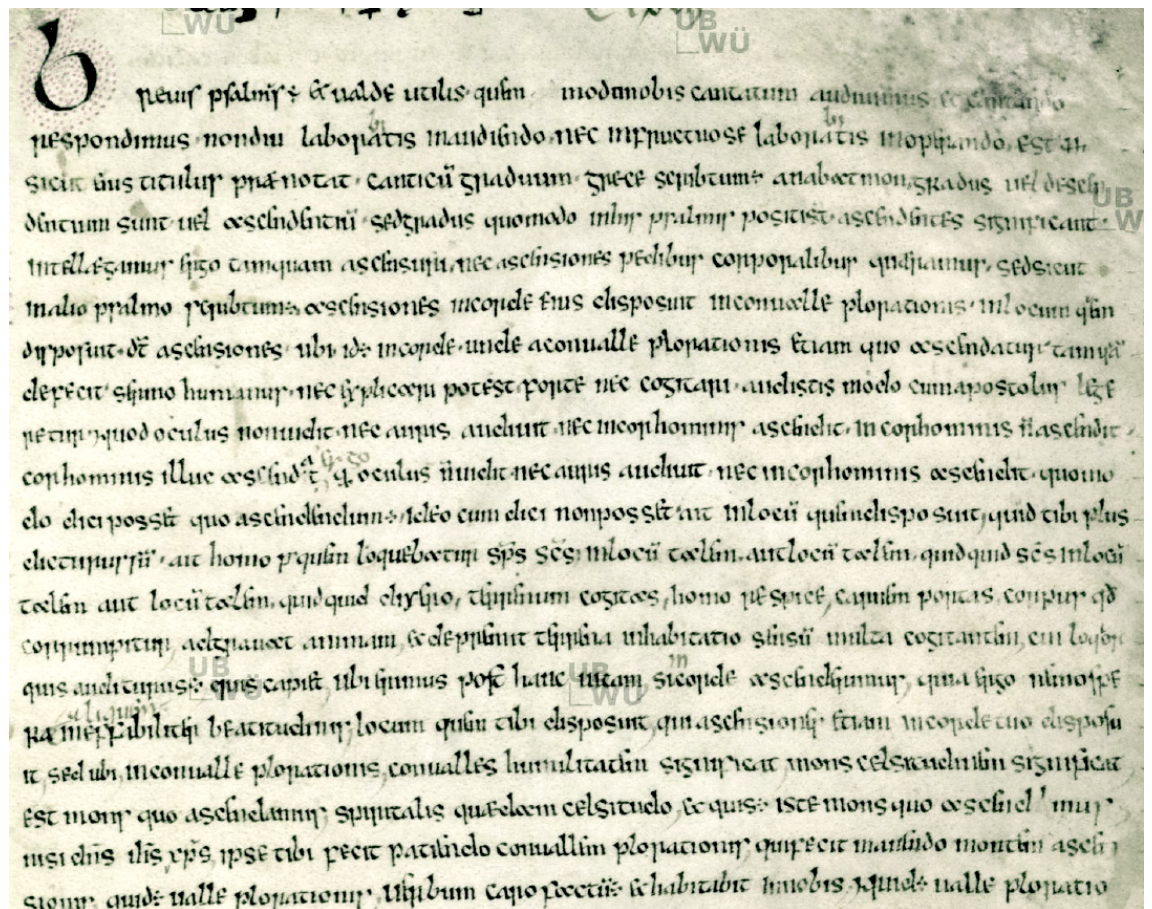 breuis psalmus ÷ & ualde utilis · quem modo nobis cantatum audiuimus & cantando
respondimus · nondiu laboratis in audiendo · nec infructuose laboratis in operando, est
sicut eius titulus prænotat · canticū graduum · grece scribtum ÷ anabatmon, gradus uel
dentium sunt · uel ascendentiū · sed gradus quomodo in his psalmis positi st̄ · ascendentes significant ·
intellægamus ergo tamquam ascensuri, nec ascensiones pedibus corporalibus quæramus, sed sicut
in alio psalmo scribtum ÷, ascensiones in corde eius disposuit in conualle plorationis · in locum quem
disposuit · dx̄ ascensiones · ubi id÷ in corde · unde a conualle plorationis etiam quo ascendatur
defecit sermo humanus · nec explicari potest forte nec cogitari · audistis modo cum apostolus lege
retur · quod oculus non uidit · nec auris audiuit · nec in cor hominis ascendit · in cor hominis n̄ ascendit ·
cor hominis illuc ascendat ergo oculus n̄ uidit · nec auris audiuit · nec in cor hominis ascendit · quomo
do dici posset quo ascendendum ÷, ideo cum dici non posset · ait in locū quem disposuit, quid tibi plus
dicturus sū · ait homo p quem loquebatur sps scs, in locū talem, aut locū talem, quidquid
talem aut locū talem, quidquid dixero, terrenum cogitas, homo respice, carnem portas, corpus qd
corrumpitur, adgrauat animam, & depremit terrena inhabitatio sensū multa cogitantem, cui loquor
quis auditurus ÷ quis capiet, ubi erimus post hanc uitam si in corde ascenderimus, quia ergo nemo spe
ra aliquem ineffabiliter beatitudinis, locum quem tibi disposuit, qui ascensiones etiam in corde tuo disposu
it, sed ubi, in conualle plorationis, conualles humilitatem significat, mons celsitudinem significat,
est mons quo ascendamus, spiritalis quædam celsitudo, & quis ÷ iste mons quo ascendimus
nisi dn̄s ih̄s xp̄s, ipse tibi fecit patiendo conuallem plorationis, qui fecit manendo montem ascen
sionis, quid ÷ ualle plorationis, uerbum caro factū ÷ & habitabit in nobis, quid ÷ ualle ploratio